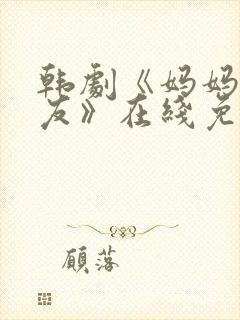 韩劇《妈妈
友》在线免
顧落